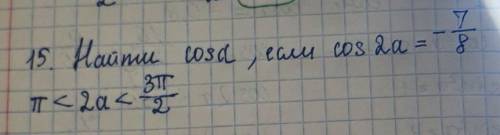 15. Найти cosα, если cos2α = -7/8
π < 2α < 3π/2